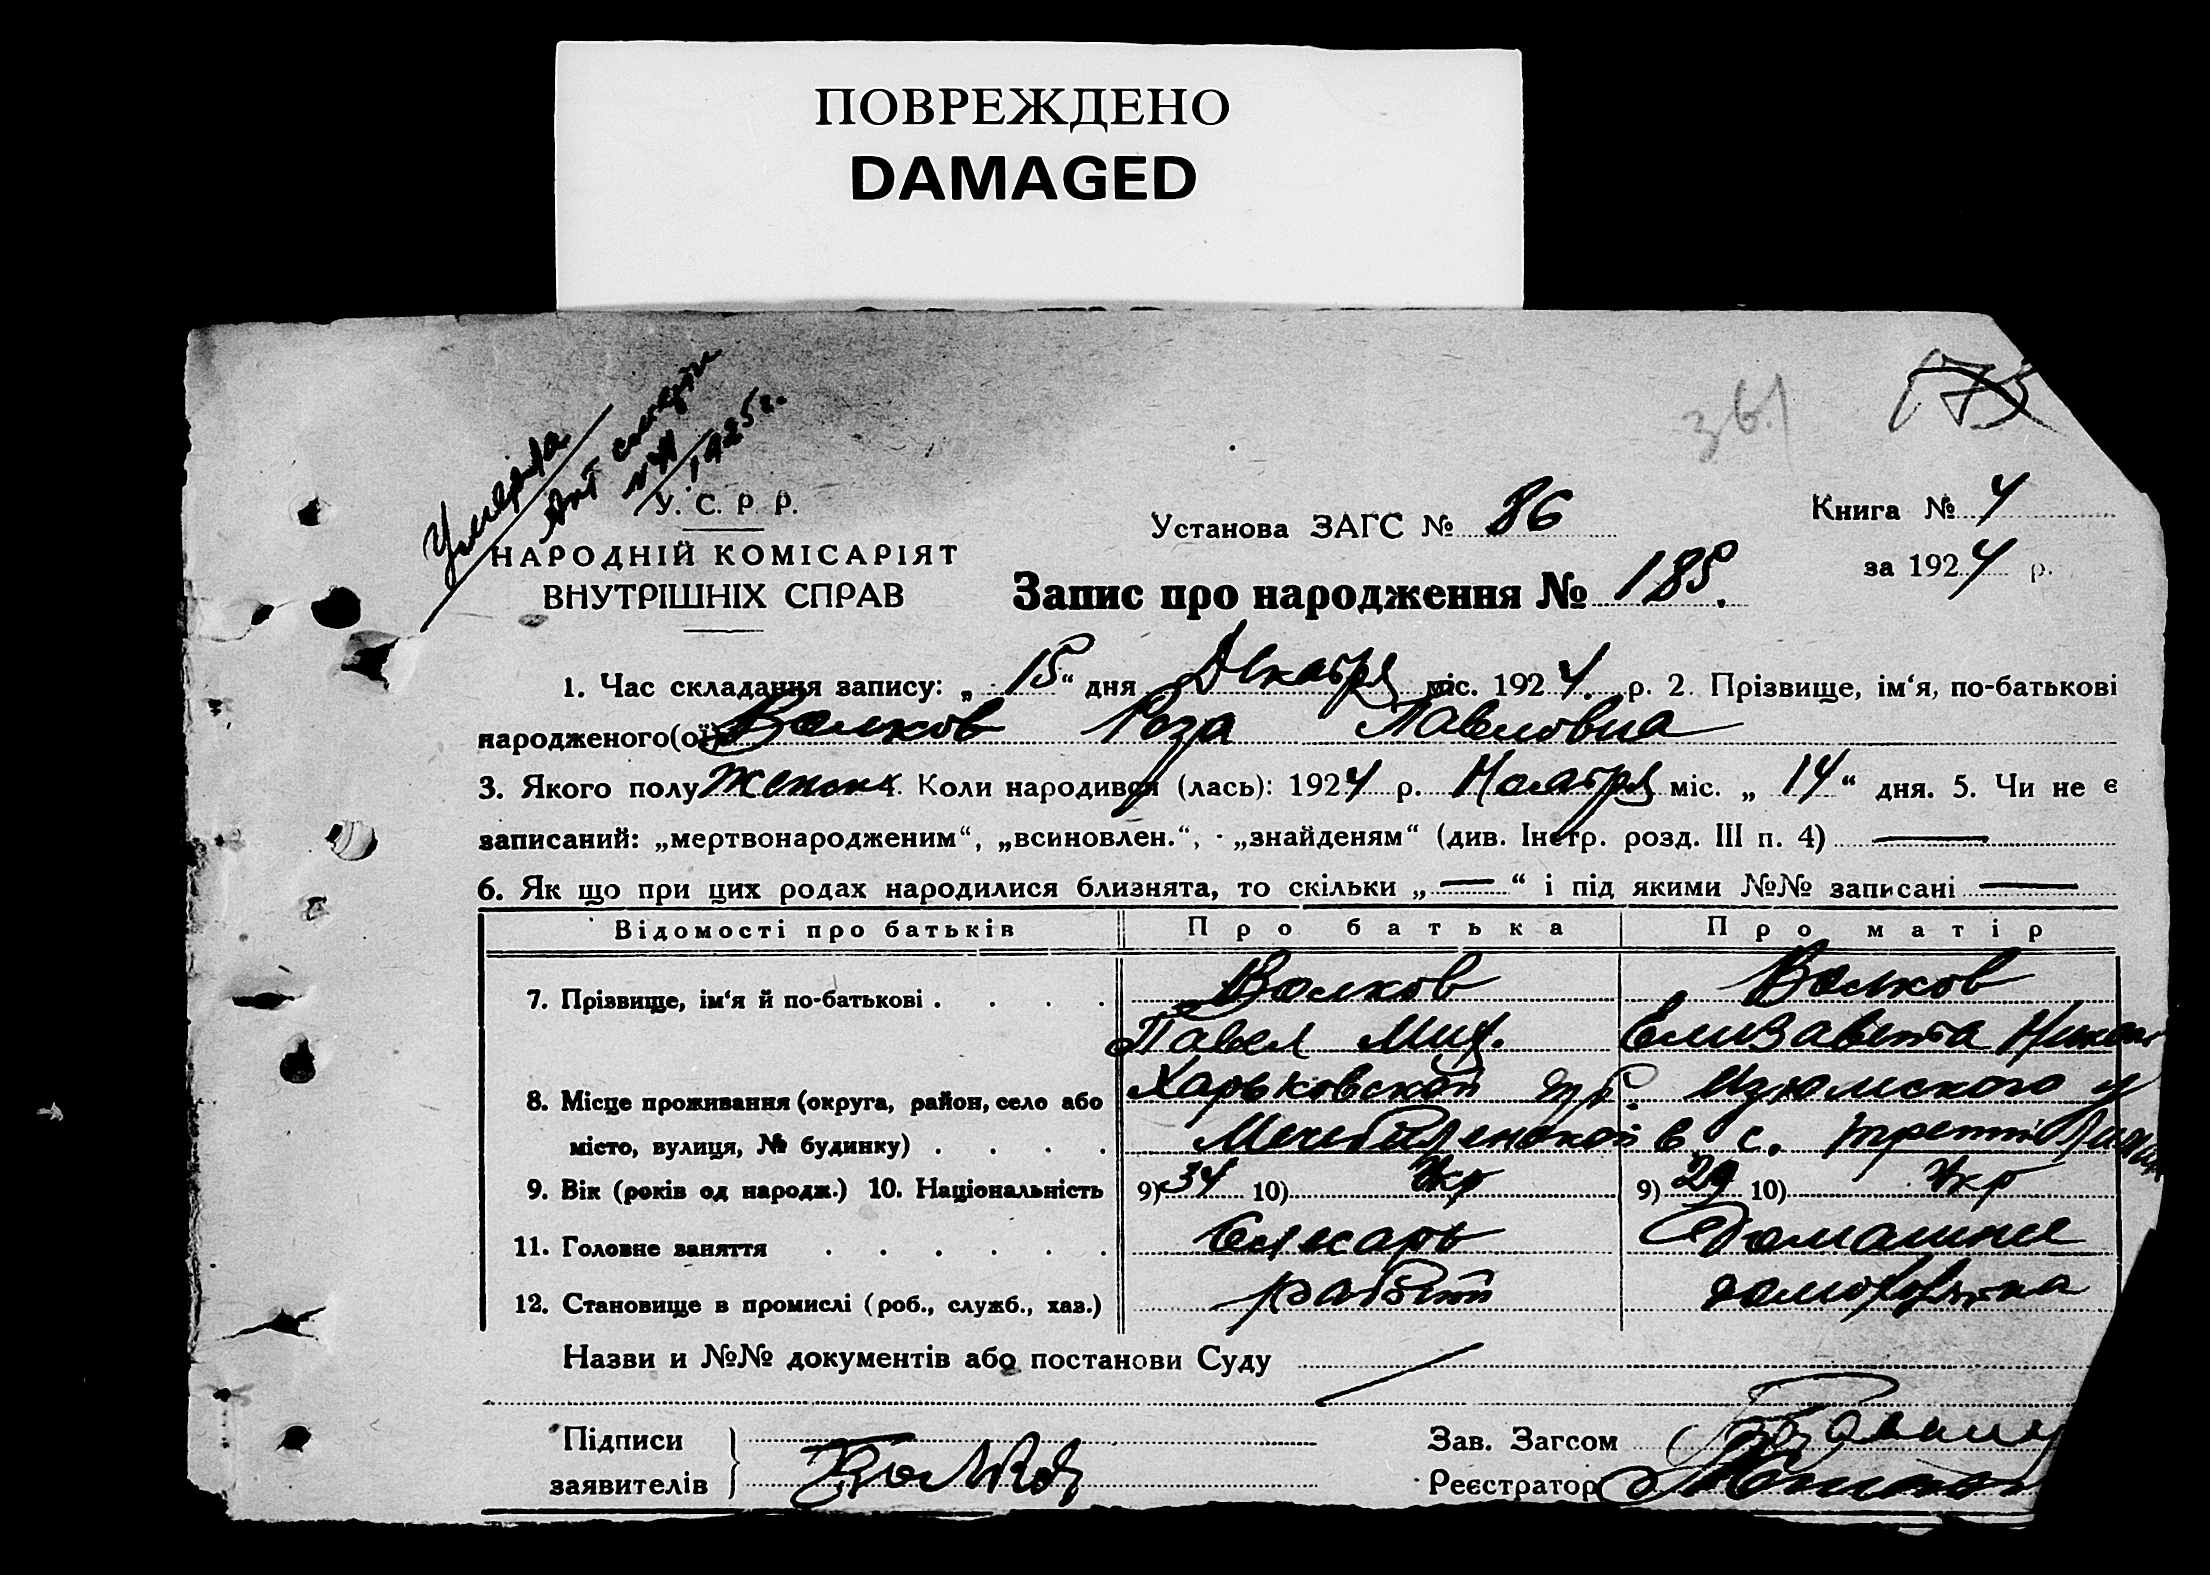 ПОВРЕЖДЕНО
DAMAGED
361
175
Умерла
Акт смерти
1925 г.
У. С. Р. Р.
НАРОДНІЙ КОМІСАРІЯТ
ВНУТРІШНІХ СПРАВ
Установа ЗАГС № 86
Книга № 4
за 1924 р.
Запис про народження № 185.
1. Час складання запису: „15“ дня Декабря міс. 1924. р. 2. Прізвище, ім‘я, по-батькові
народженого(ої) Волков Роза Павловна
3. Якого полу женск 4. Коли народився (лась): 1924 р. Ноября міс. „14“ дня. 5. Чи не є
записаний: „мертвонародженим“, „всиновлен.“, „знайденям“ (див. Інстр. розд. III п. 4) —
6. Як що при цих родах народилися близнята, то скільки „—“ і під якими №№ записані —
Відомості про батьків Про батька Про матір
7. Прізвище, ім‘я й по-батькові . . . . Волков Волков
Павел Мих. Елизавета Никол
8. Місце проживання (округа, район, село або Харьковской губ. Изюмского у
місто, вулиця, № будинку) . . . . в с.
9. Вік (років од народж.) 10. Національність 9) 34 10) Укр 9) 29 10) Укр
11. Головне заняття . . . . . . Слюсарь Домашние
12. Становище в промислі (роб., служб., хаз.)
Назви и №№ документів або постанови Суду
Підписи
заявителів Волков
Зав. Загсом
Реєстратор